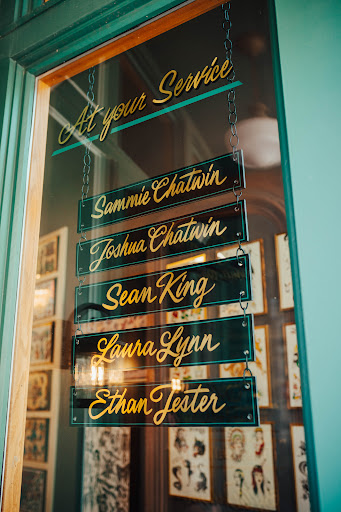 At your Service
Sammie Chatwin
Joshua Chatwin
Sean King
Laura Lynn
Ethan Jester